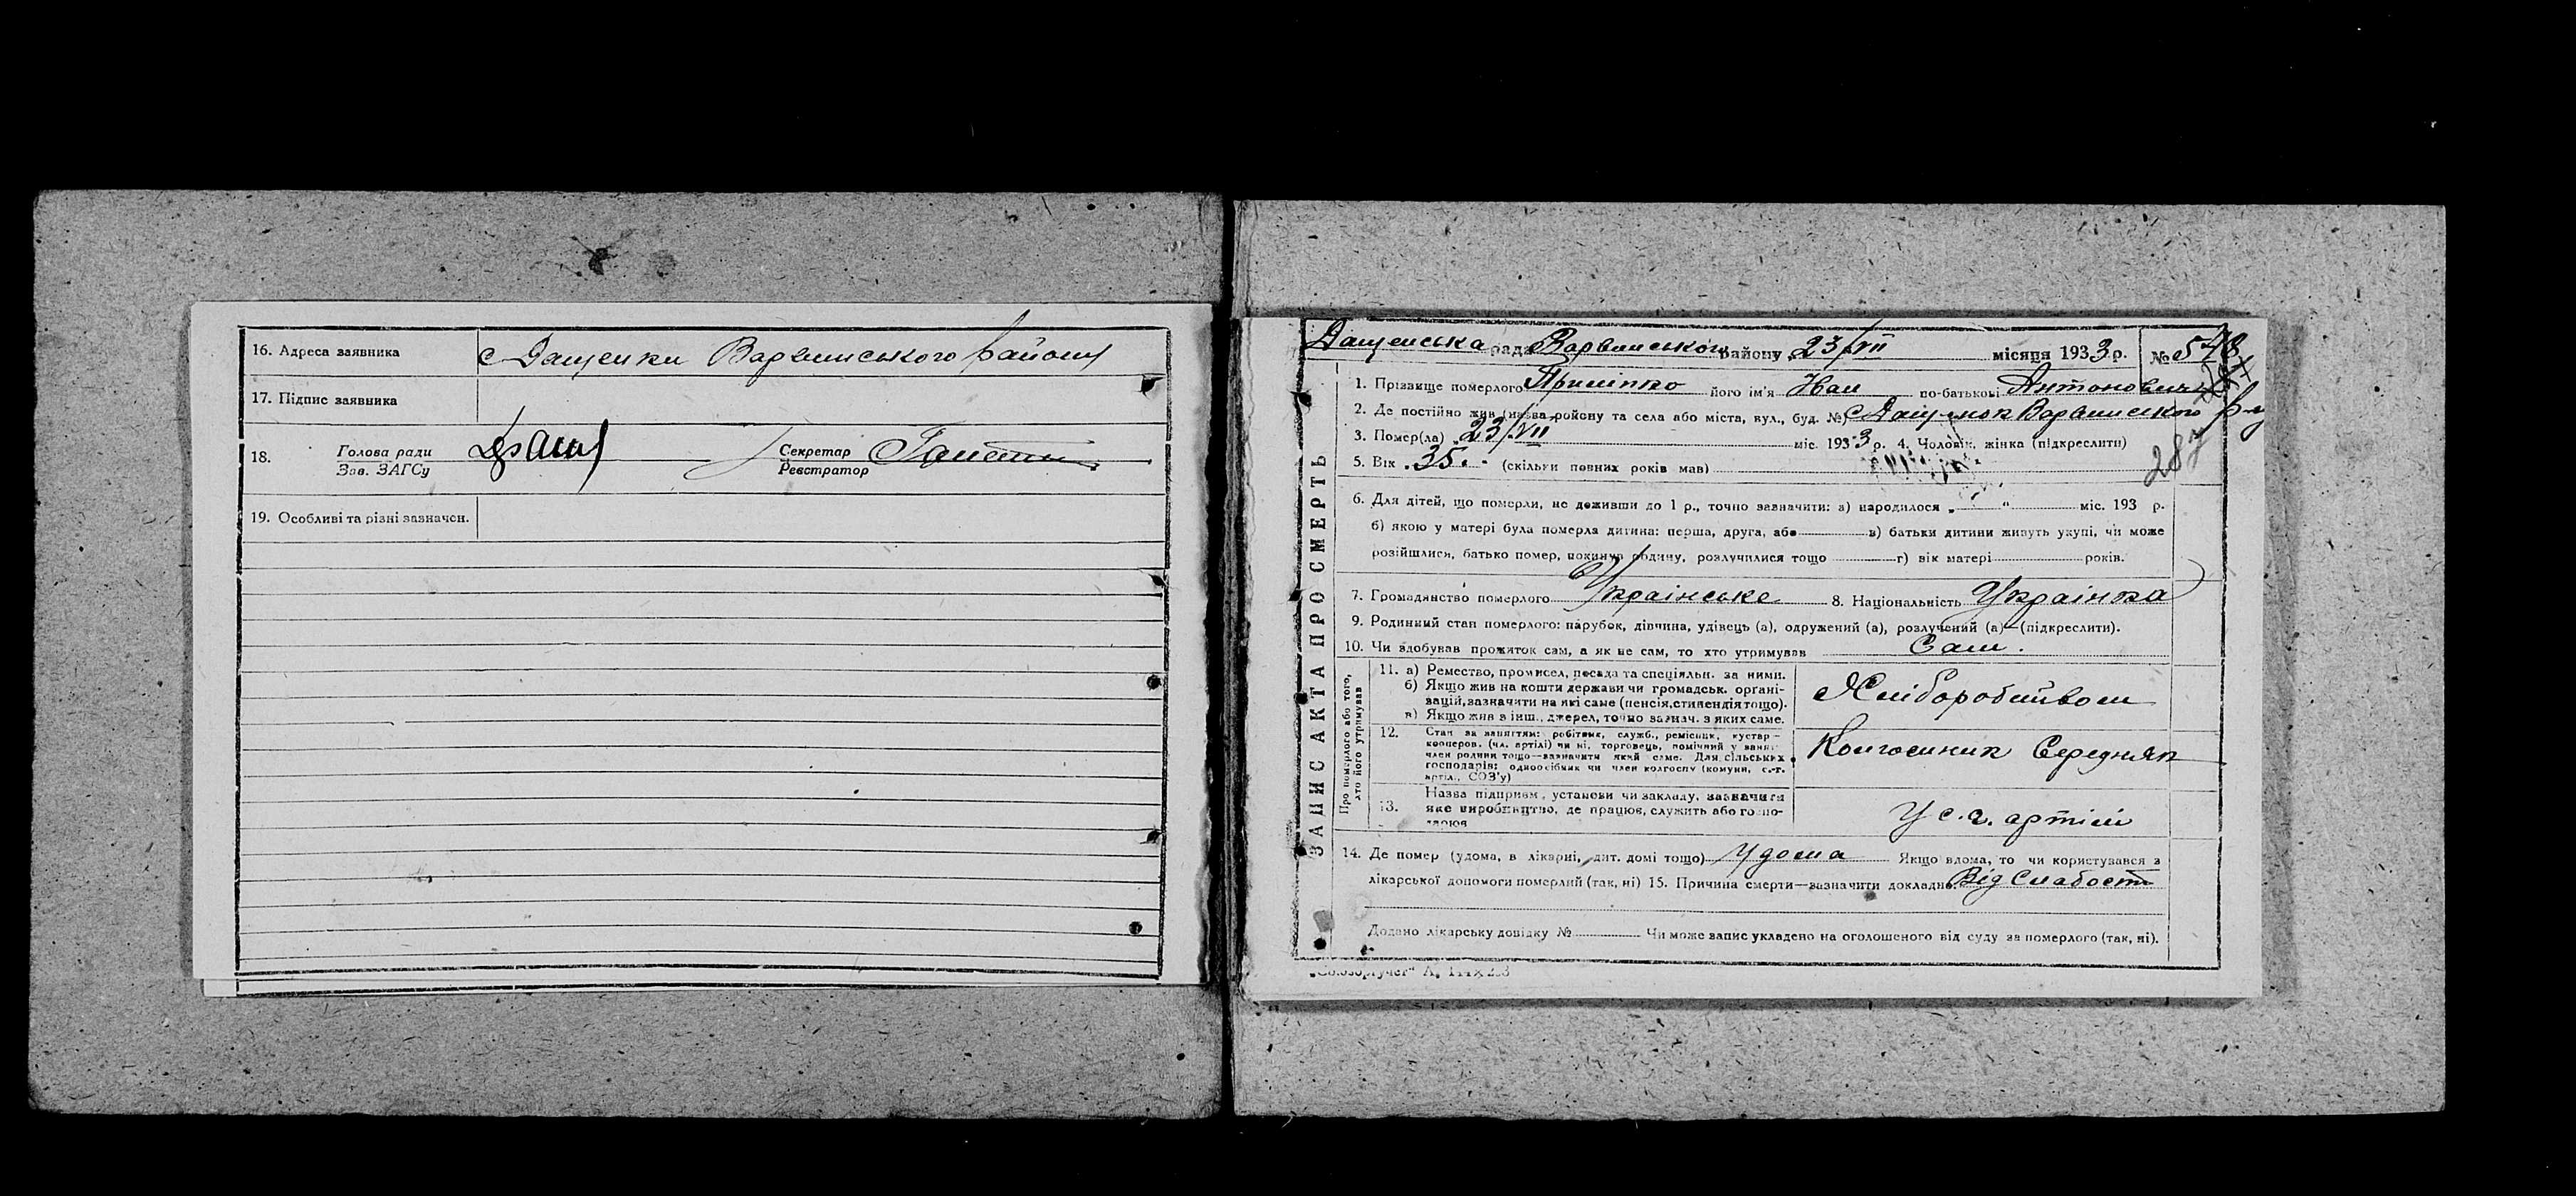 16. Адреса заявника с Дащенки Варвинського району
17. Підпис заявника
18. Голова ради
Зав. ЗАГСу
Секретар
Реєстратор
19. Особливі та різні зазначен.
Дащенська рада Варвинського району 23/VII місяця 1933 р. № 548
1. Прізвище померлого Приліпко його ім'я Иван по-батькові Антонович
2. Де постійно жив (назва району та села або міста, вул., буд. № с Дащенок Варвинського р-у
3. Помер(ла) 23/VII міс. 1933 р. 4. Чоловік, жінка (підкреслити)
5. Вік 35. (скільки повних років мав)
287
6. Для дітей, що померли, не доживши до 1 р., точно зазначити: а) народилося „ “ міс. 193 р.
б) якою у матері була померла дитина: перша, друга, або в) батьки дитини живуть укупі, чи може
розійшлися, батько помер, покинув родину, розлучилися тощо г) вік матері років.
7. Громадянство померлого Українське 8. Національність Українка
9. Родинний стан померлого: парубок, дівчина, удівець (а), одружений (а), розлучений (а)—(підкреслити).
10. Чи здобував прожиток сам, а як не сам, то хто утримував Сам.
ЗАПИС АКТА ПРО СМЕРТЬ
Про померлого або того,
хто його утримував
11. а) Ремество, промисел, посада та спеціяльн. за ними.
б) Якщо жив на кошти держави чи громадськ. органі-
зацій, зазначити на які саме (пенсія, стипендія тощо).
в) Якщо жив з інш., джерел, точно зазнач. з яких саме.
Хліборобством
12. Стан за заняттям: робітник, служб., ремісник, кустар—
кооперов. (чл. артілі) чи ні, торговець, помічний у занят.
член родини тощо—зазначити який саме. Для сільських
господарів: одноосібник чи член колгоспу (комуни, с.-г.
артілі, СОЗ'у)
Колгоспник Середняк
13. Назва підприєм., установи чи закладу, зазначити
яке виробництво, де працює, служить або госпо-
дарює
У с.г. артілі
14. Де помер (удома, в лікарні, дит. домі тощо) Удома Якщо вдома, то чи користувався з
лікарської допомоги померлий (так, ні) 15. Причина смерти—зазначити докладно Від Слабости
Додано лікарську довідку № Чи може запис укладено на оголошеного від суду за померлого (так, ні).